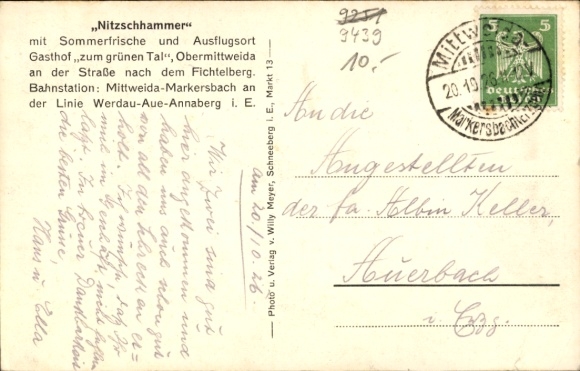 „Nitzschhammer"
mit Sommerfrische und Ausflugsort
Gasthof „zum grünen Tal", Obermittweida
an der Straße nach dem Fichtelberg.
Bahnstation: Mittweida-Markersbach an
der Linie Werdau-Aue-Annaberg i. E.
9251
9439
10,-
5 5
Deutsches
Mittweida
20.10.26
Markersbach
Photo u. Verlag v. Willy Meyer, Schneeberg i. E., Markt 13
am 20/10.26.
Wir zwei sind gut
hier angekommen und
haben uns auch schon gut
von all dem Schreck er-
holt. Ich wünsche, daß Ihr
mir im Geschäft, nicht
In treuer Dankbarkeit
die besten Grüße,
Hans u. Ella
An die
Angestellten
der fa. Albin Keller,
Auerbach
i. Erzg.